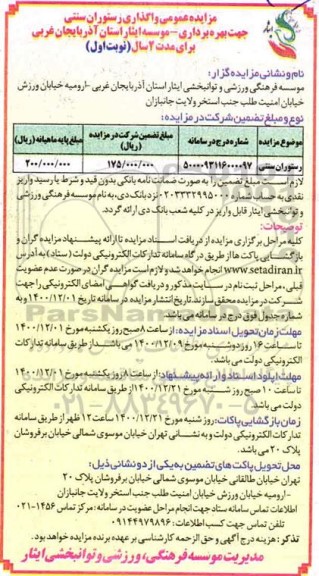 مزایده عمومی واگذاری رستوران سنتی
جهت بهره برداری - موسسه ایثار استان آذربایجان غربی
برای مدت ۲ سال (نوبت اول)
نام و نشانی مزایده گزار:
موسسه فرهنگی ورزشی و توانبخشی ایثار استان آذربایجان غربی - ارومیه خیابان ورزش
خیابان امنیت طلب جنب استخر ولایت جانبازان
نوع و مبلغ تضمین شرکت در مزایده:
موضوع مزایده شماره درج در سامانه مبلغ تضمین شرکت در مزایده (ریال) مبلغ پایه ماهیانه (ریال)
رستوران سنتی ۵۰۰۰۰۹۳۱۱۶۰۰۰۰۹۷ ۱۷۵/۰۰۰/۰۰۰ ۲۰۰/۰۰۰/۰۰۰
لازم است مبلغ تضمین را به صورت ضمانت نامه بانکی بدون قید و شرط یا رسید واریز
نقدی به حساب شماره ۰۲۰۳۳۳۲۹۹۵۰۰۰ نزد بانک دی، به نام موسسه فرهنگی ورزشی
و توانبخشی ایثار قابل واریز در کلیه شعب بانک دی ارائه گردد.
توضیحات:
کلیه مراحل برگزاری مزایده از دریافت اسناد مزایده تا ارائه پیشنهاد مزایده گران و
بازگشایی پاکت ها از طریق درگاه سامانه تدارکات الکترونیکی دولت (ستاد) به آدرس
www.setadiran.ir انجام خواهد شد و لازم است مزایده گران در صورت عدم عضویت
قبلی، مراحل ثبت نام در سایت مذکور و دریافت گواهی امضای الکترونیکی را جهت
شرکت در مزایده محقق سازند. تاریخ انتشار مزایده در سامانه تاریخ ۱۴۰۰/۱۲/۰۱ و به
شماره جدول فوق درج در سامانه می باشد.
مهلت زمان تحویل اسناد مزایده: از ساعت ۸ صبح روز یکشنبه مورخ ۱۴۰۰/۱۲/۰۱
تا ساعت ۱۶ روز دوشنبه مورخ ۱۴۰۰/۱۲/۰۹ می باشد از طریق سامانه تدارکات
الکترونیکی دولت می باشد.
مهلت آپلود اسناد و ارائه پیشنهاد: از ساعت ۸ روز یکشنبه مورخ ۱۴۰۰/۱۲/۰۱
تا ساعت ۱۰ صبح روز شنبه مورخ ۱۴۰۰/۱۲/۲۱ از طریق سامانه تدارکات الکترونیکی
دولت می باشد.
زمان بازگشایی پاکات: روز شنبه مورخ ۱۴۰۰/۱۲/۲۱ ساعت ۱۲ ظهر از طریق سامانه
تدارکات الکترونیکی دولت و به نشانی تهران خیابان موسوی شمالی خیابان برفروشان
پلاک ۲۰ می باشد.
محل تحویل پاکت های تضمین به یکی از دو نشانی ذیل:
تهران خیابان طالقانی خیابان موسوی شمالی خیابان برفروشان پلاک ۲۰
- ارومیه خیابان ورزش خیابان امنیت طلب جنب استخر ولایت جانبازان
اطلاعات تماس سامانه ستاد جهت انجام مراحل عضویت در سامانه: مرکز تماس ۱۴۵۶-۰۲۱
تلفن تماس جهت کسب اطلاعات: ۰۹۱۴۴۹۷۹۸۹۶
تذکر: هزینه درج آگهی و حق الزحمه کارشناسی بر عهده برنده مزایده خواهد بود.
مدیریت موسسه فرهنگی، ورزشی و توانبخشی ایثار